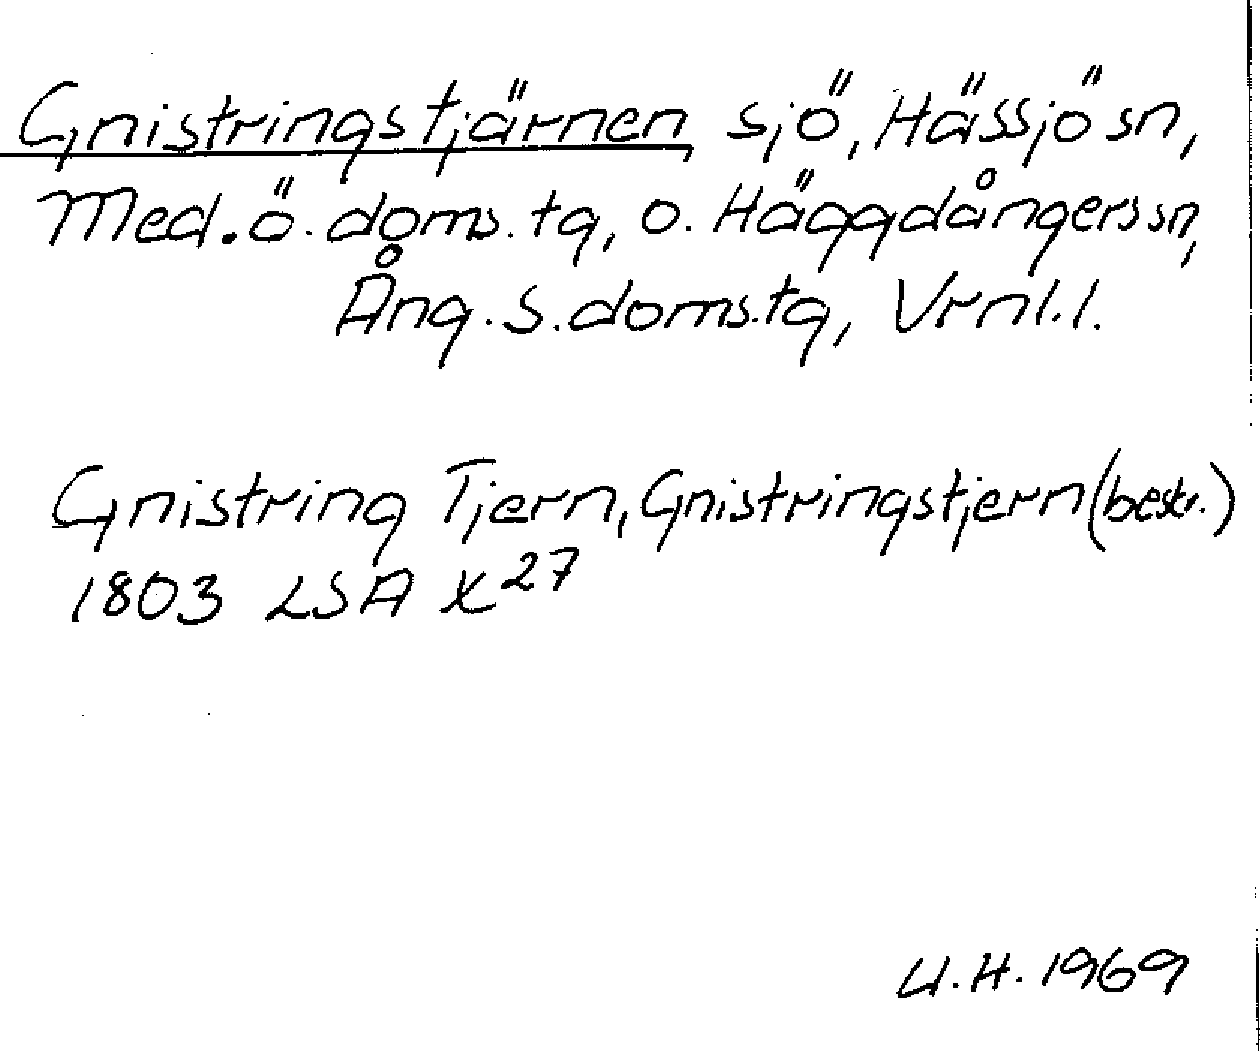 Gnistringstjärnen sjö, Hässjö sn,
Med.ö.doms.tg, o. Häggdångers sn,
Ång.s.doms.tg, Vrnl.l.
Gnistring Tjern, Gnistringstjern (beskr.)
1803 LSA X 27
U.H. 1969